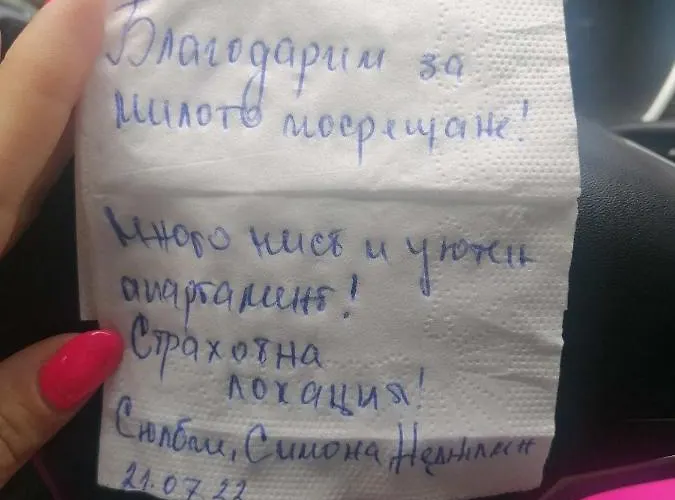 Благодарим за
милото посрещане!
Много чист и уютен
апартамент!
Страхотна
локация!
Симона,
21.07.22